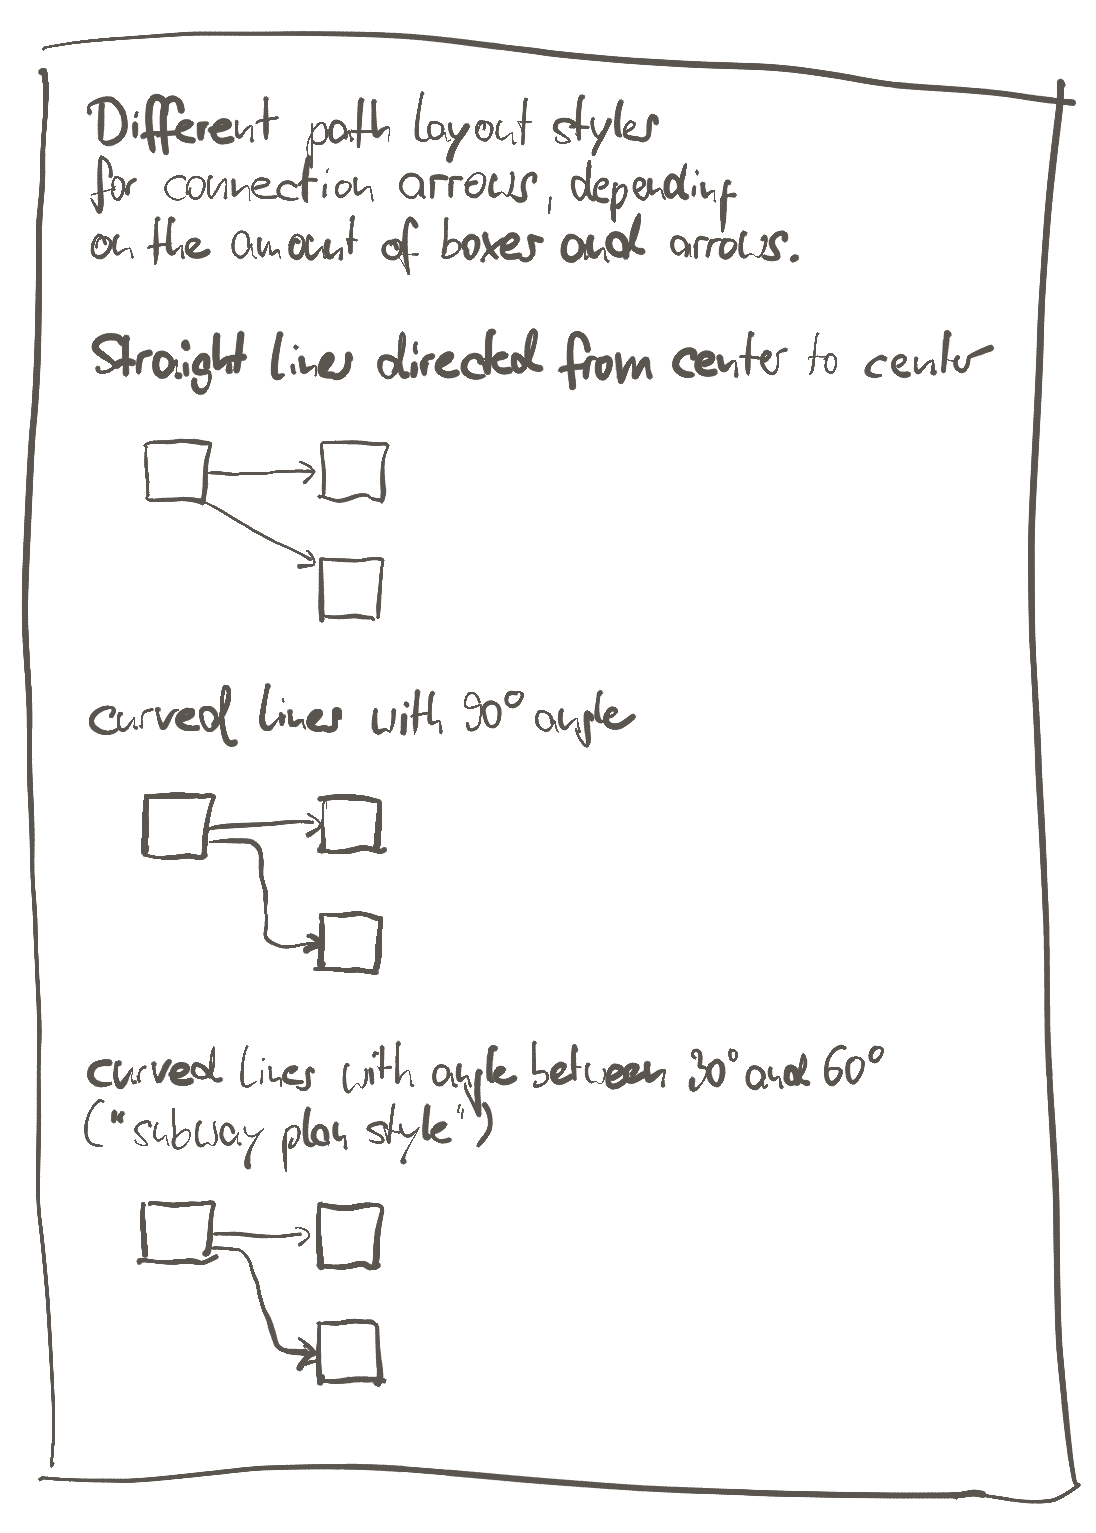 Different path layout styles
for connection arrows, depending
on the amount of boxes and arrows.
Straight lines directed from center to center
curved lines with 90° angle
curved lines with angle between 30° and 60°
("subway plan style")